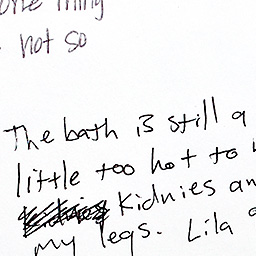 thing
not so
The bath is still a
little too hot to
Kidnies an
my legs. Lila